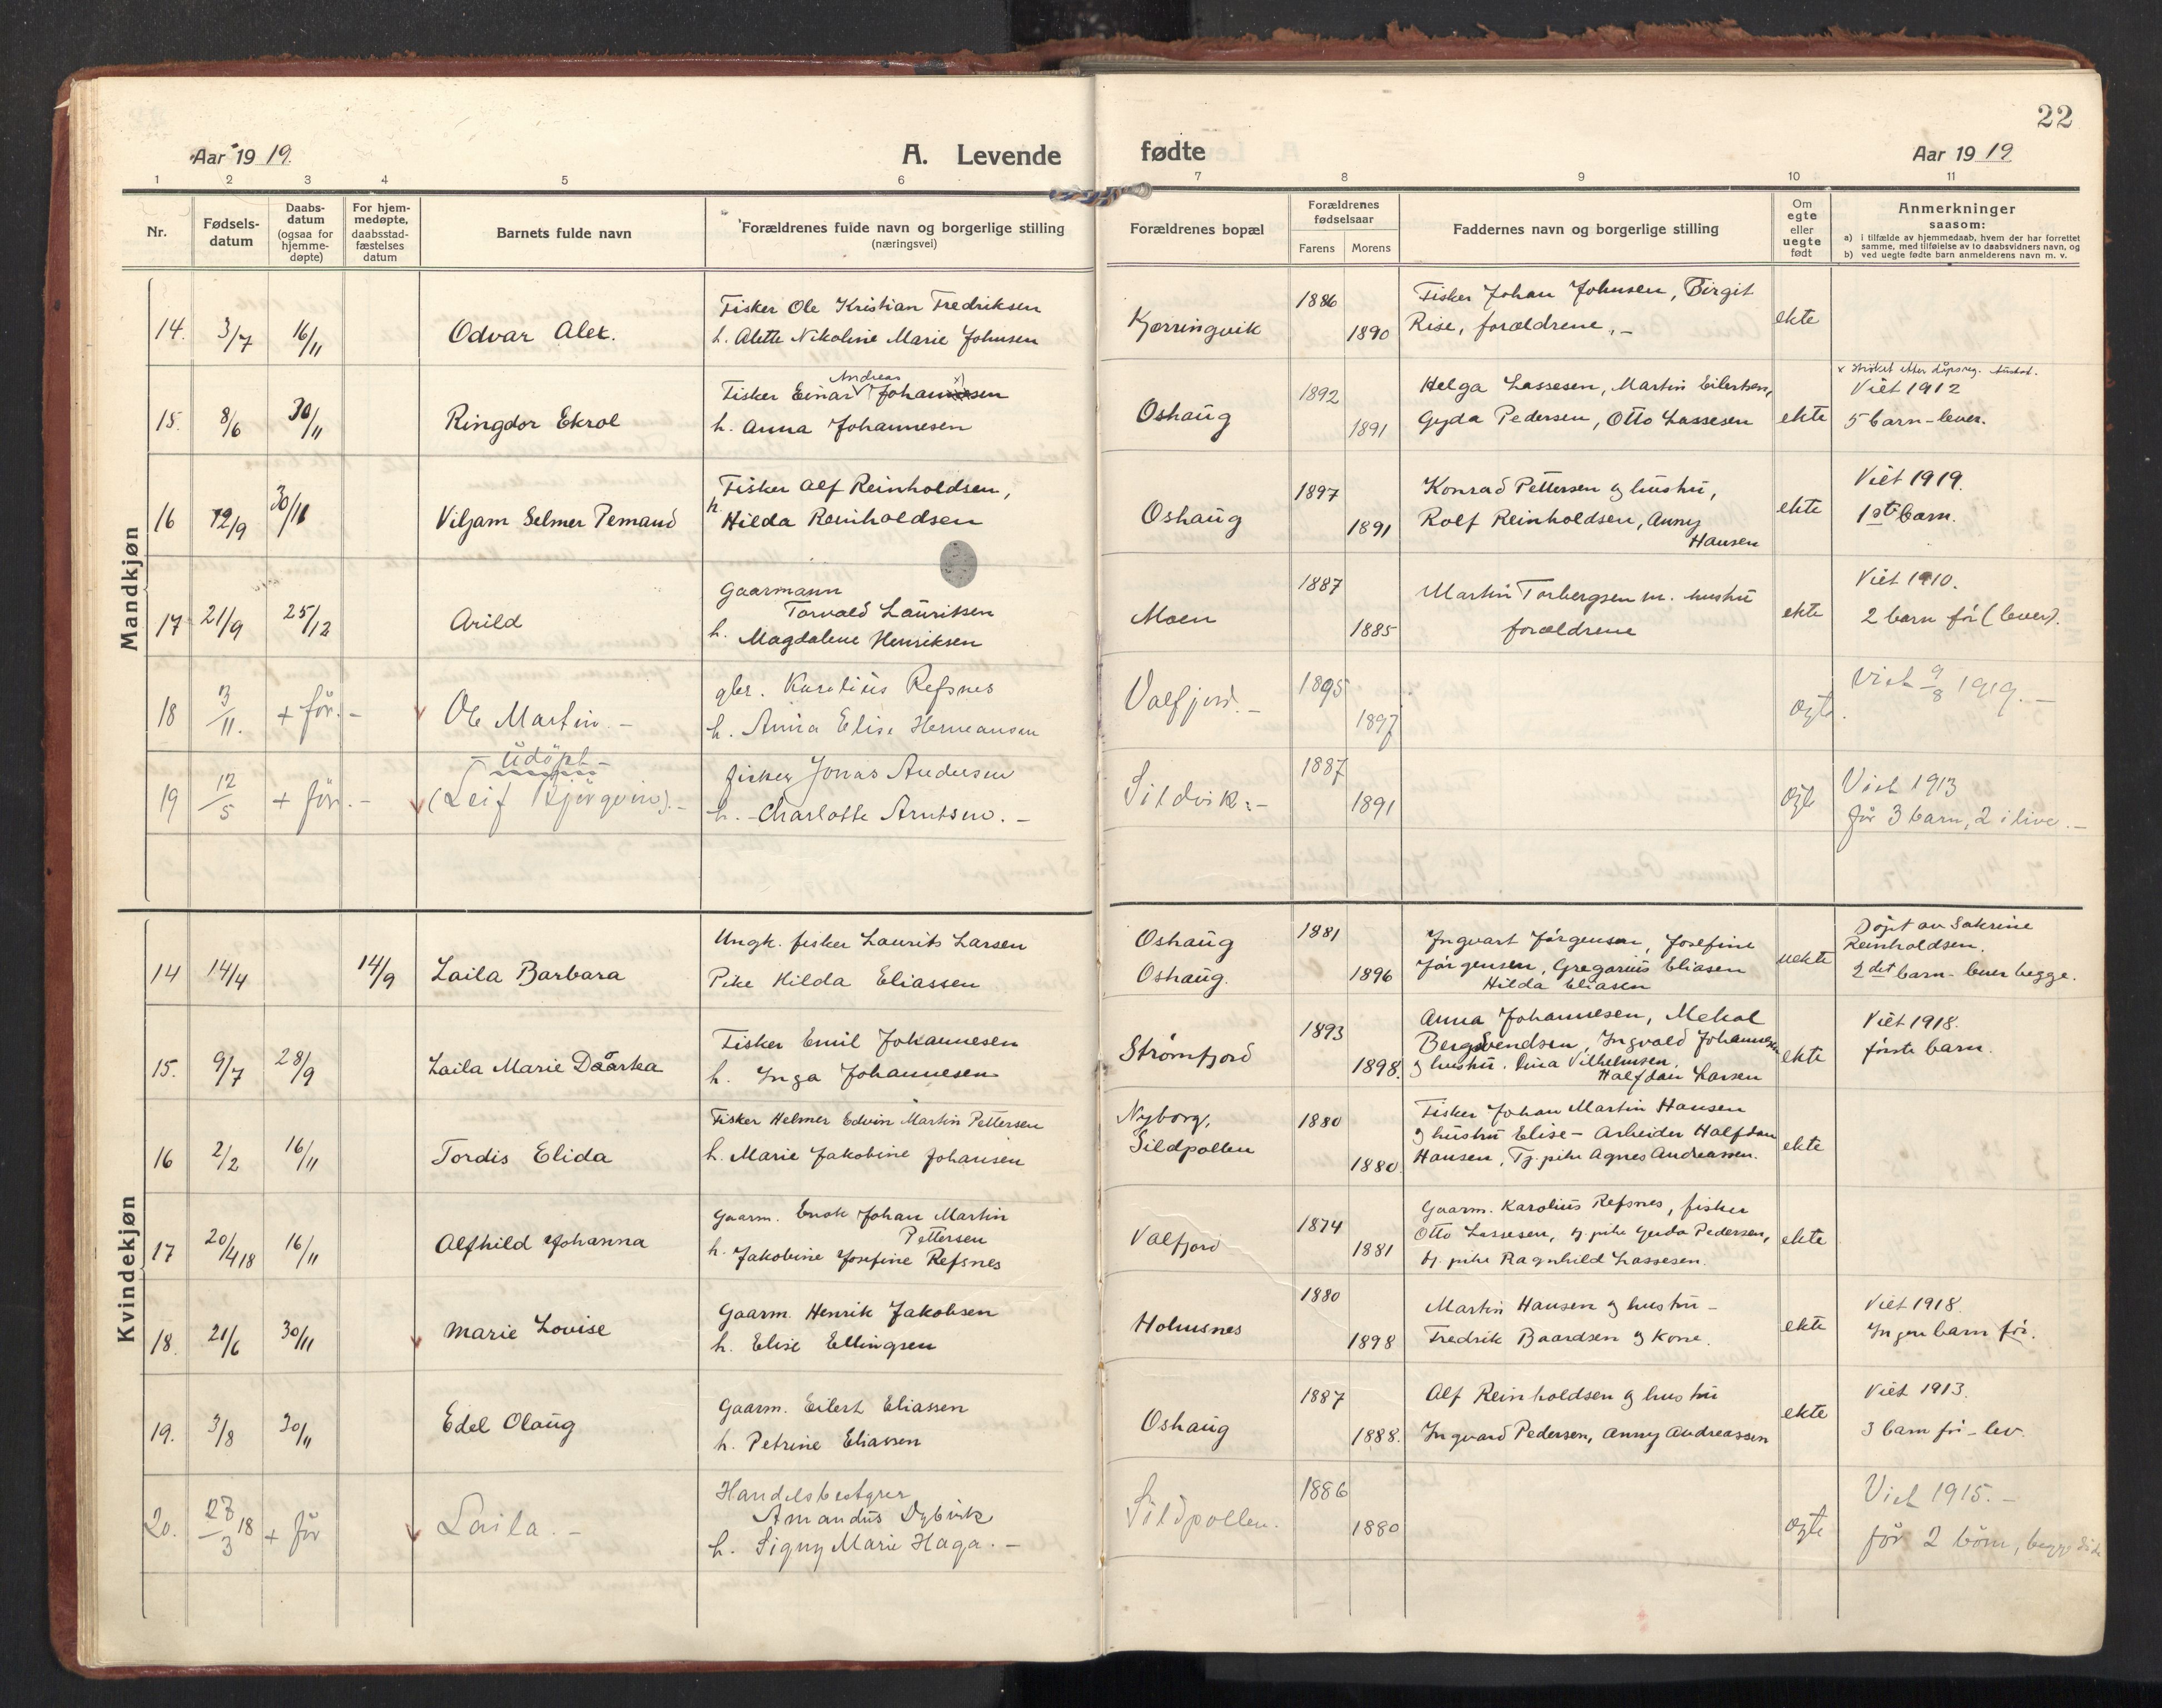 22
Aar 1919.
A. Levende
fødte
Aar 1919
1 2 3 4 5 6 7 8 9 10 11
Nr.
Fødsels-
datum
Daabs-
datum
(ogsaa for
hjemme-
døpte)
For hjem-
medøpte,
daabsstad-
fæstelses
datum
Barnets fulde navn
Forældrenes fulde navn og borgerlige stilling
(næringsvei)
Forældrenes bopæl
Forældrenes
fødselsaar
Farens Morens
Faddernes navn og borgerlige stilling
Om
egte
eller
uegte
født
Anmerkninger
saasom:
a) i tilfælde av hjemmedaab, hvem der har forrettet
samme, med tilføielse av to daabsvidners navn, og
b) ved uegte fødte barn anmelderens navn m. v.
Mandkjøn
14. 3/7 16/11 Odvar Alex.
Fisker Ole Kristian Fredriksen
h. Alette Nikoline Marie Johnsen
Kjerringvik 1886 1890
Fisker Johan Johnsen, Birgit
Rise, forældrene, –
ekte
15. 8/6 30/11 Ringdor Ekrol
Andreas x)
Fisker Einar Johannesen
h. Anna Johannesen
Oshaug 1892 1891
Helga Lassesen, Martin Eilertsen,
Gyda Pedersen, Otto Lassesen
ekte
x Strøket etter dåpsreg.
Viet 1912
5 barn – lever.
16 12/9 30/11 Viljam Selmer Pemand
Fisker Alf Reinholdsen,
h. Hilda Reinholdsen
Oshaug 1897 1891
Konrad Pettersen og hustru,
Rolf Reinholdsen, Anny
Hansen
ekte
Viet 1919.
1ste barn.
17 21/9 25/12 Arild
Gaarmann
Torvald Lauritsen
h. Magdalene Henriksen
Moen 1887 1885
Martin Torbergsen m. hustru
forældrene
ekte
Viet 1910.
2 barn før (lever).
18 3/11. + før. – Ole Martin. –
gbr. Karolius Refsnes
h. Anna Elise Hermansen
Valfjord. – 1895 1897
egte.
Viet 9/8 1919. –
19 12/5 + før. –
– Udøpt –
(Leif Bjergvin). –
fisker Jonas Andersen
h. Charlotte Arntsen. –
Sildvik. – 1887 1891
egte
Viet 1913
før 3 barn, 2 i live. –
Kvindekjøn
14 14/4 14/9 Laila Barbara
Ungk. fisker Laurits Larsen
Pike Hilda Eliassen
Oshaug
Oshaug. 1881 1896
Ingvart Jørgensen, Josefine
Jørgensen, Gregorius Eliasen
Hilda Eliasen
uekte
Døpt av Sakrine
Reinholdsen.
2det barn – lever begge.
15. 9/7 28/9 Laila Marie Daarka
Fisker Emil Johannesen
h. Inga Johannesen
Strømfjord 1893 1898.
Anna Johannesen, Mekal
Bergsvendsen, Ingvald Johannesen
og hustru. Lina Vilhelmsen,
Halfdan Larsen
ekte
Viet 1918.
første barn.
16 2/2 16/11 Tordis Elida
Fisker Helmer Edvin Martin Pettersen
h. Marie Jakobine Johansen
Nyborg,
Sildpollen 1880 1880.
Fisker Johan Martin Hansen
og hustru Elise – Arbeider Halfdan
Hansen, Tj. pike Agnes Andreassen.
ekte
17 20/4 18 16/11 Alfhild Johanna
Gaarm. Enok Johan Martin
Pettersen
h. Jakobine Josefine Refsnes
Valfjord 1874 1881
Gaarm. Karolius Refsnes, fisker
Otto Lassesen, tj. pike Gerda Pedersen,
tj. pike Ragnhild Lassesen.
ekte
18. 21/6 30/11 Marie Lovise
Gaarm. Henrik Jakobsen
h. Elise Ellingsen
Holmsnes 1880 1898
Martin Hansen og hustru –
Fredrik Baardsen og kone.
ekte
Viet 1918.
Ingen barn før.
19. 3/8 30/11 Edel Olaug
Gaarm. Eilert Eliassen
h. Petrine Eliassen
Oshaug 1887 1888.
Alf Reinholdsen og hustru
Ingvard Pedersen, Anny Andreassen
ekte
Viet 1913.
3 barn før – lev.
20. 27/3 18 + før Laila. –
Handelsbestyrer
Amandus Dybvik
h. Signy Marie Haga. –
Sildpollen. 1886 1880
egte
Viet 1915. –
før 2 børn, begge